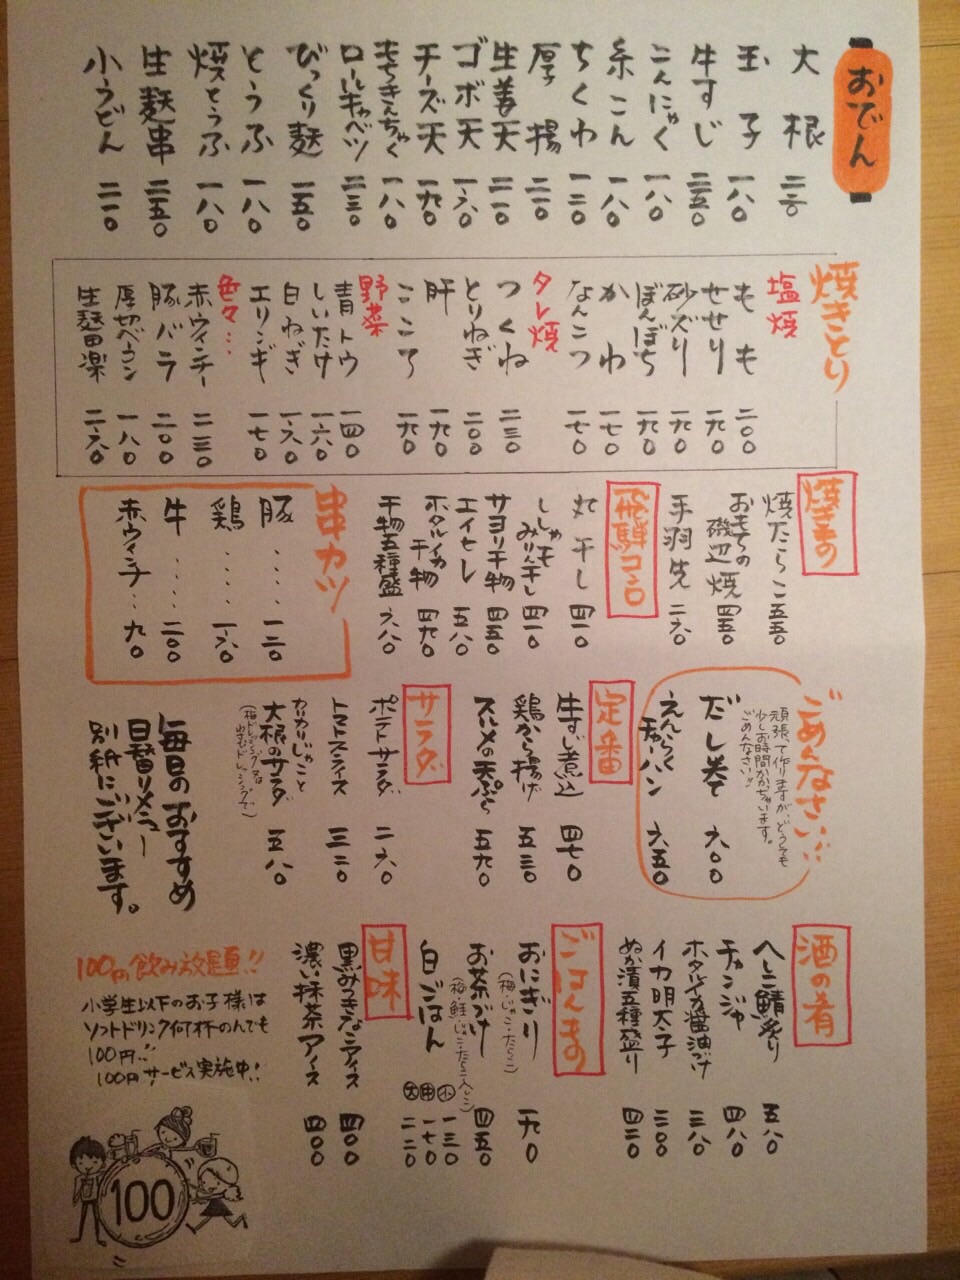 おでん
大根 二三〇
玉子 一八〇
牛すじ 二五〇
こんにゃく 一八〇
糸こん 一八〇
ちくわ 一三〇
厚揚 二二〇
生姜天 二二〇
ゴボ天 一六〇
チーズ天 一九〇
もちきんちゃく 一八〇
ロールキャベツ 二三〇
びっくり麩 一五〇
とうふ 一八〇
焼とうふ 一八〇
生麩串 二五〇
小うどん 二一〇
焼きとり
塩焼
もも 二〇〇
せせり 一九〇
砂ズリ 一九〇
ぼんぼち 一九〇
かわ 一七〇
なんこつ 一七〇
タレ焼
つくね 二三〇
とりねぎ 二〇〇
肝 一九〇
こころ 一九〇
野菜
青トウ 一四〇
しいたけ 一六〇
白ねぎ 一六〇
エリンギ 一七〇
色々…
赤ウインナー 二三〇
豚バラ 二〇〇
厚切ベーコン 一八〇
生麩田楽 二六〇
焼きもの
焼たらこ 五五〇
おもちの磯辺焼 四五〇
手羽先 二六〇
飛騨コンロ
丸干し 四一〇
ししゃもみりん干し 四一〇
サヨリ干物 四五〇
エイヒレ 五八〇
ホタルイカ干物 四九〇
干物五種盛 六八〇
串カツ
豚・・・・ 一二〇
鶏・・・・ 一六〇
牛・・・・ 二〇〇
赤ウインナー・・ 九〇
ごめんなさい…
頑張って作りますが、どうしても
少しお時間かかちゃいます。
ごめんなさい!!
だし巻 六〇〇
えんらくチャーハン 六五〇
定番
牛すじ煮込 四七〇
鶏から揚げ 五三〇
スルメの天ぷら 五九〇
サラダ
ポテトサラダ 二六〇
トマトスライス 三二〇
カリカリじゃこと大根のサラダ 五八〇
毎日のおすすめ
日替りメニュー
別紙にございます。
酒の肴
へしこ鯖炙り 五八〇
チャンジャ 四八〇
ホタルイカ醤油づけ 三八〇
イカ明太子 三〇〇
ぬか漬五種盛り 四二〇
ごはんもの
おにぎり 一九〇
(梅・じゃこ・たらこ)
お茶づけ 四五〇
白ごはん
小 一三〇
中 一七〇
大 二二〇
甘味
黒みつきなこアイス 四〇〇
濃い抹茶アイス 四〇〇
100円飲み放題!!
小学生以下のお子様は
ソフトドリンク何杯のんでも
100円!!
100円サービス実施中!!
100